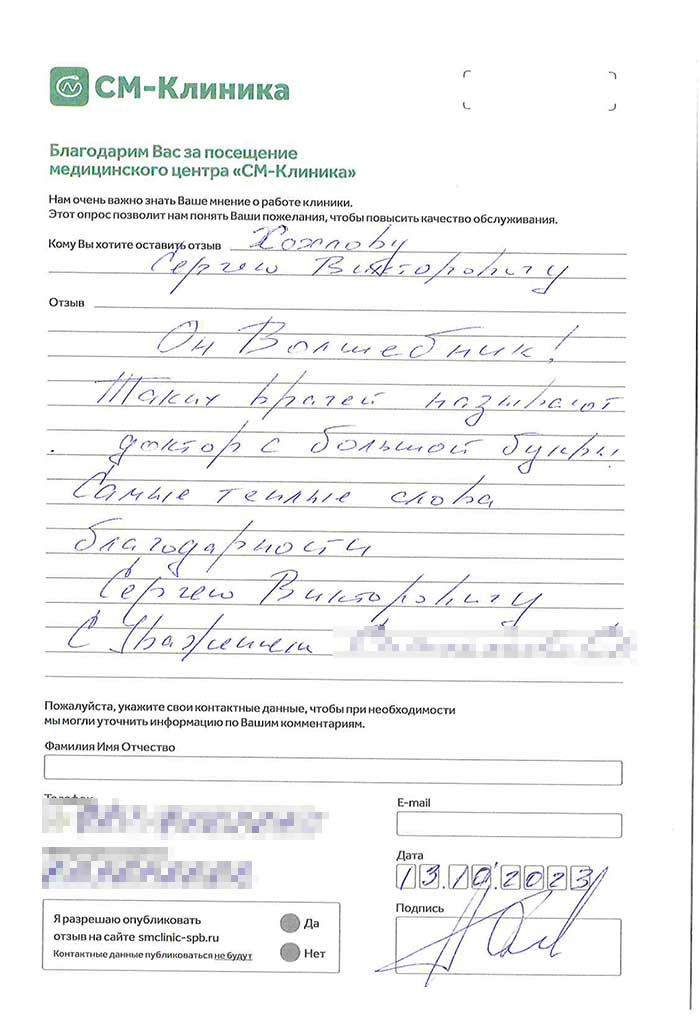 СМ-Клиника
Благодарим Вас за посещение
медицинского центра «СМ-Клиника»
Нам очень важно знать Ваше мнение о работе клиники.
Этот опрос позволит нам понять Ваши пожелания, чтобы повысить качество обслуживания.
Кому Вы хотите оставить отзыв Хохлову
Сергею Викторовичу
Отзыв
Он Волшебник!
Таких врачей называют
доктор с большой буквы.
Самые теплые слова
благодарности
Сергею Викторовичу
С Уважением
Пожалуйста, укажите свои контактные данные, чтобы при необходимости
мы могли уточнить информацию по Вашим комментариям.
Фамилия Имя Отчество
Телефон
E-mail
Дата
13.10.2023
Подпись
Я разрешаю опубликовать
отзыв на сайте smclinic-spb.ru
Контактные данные публиковаться не будут
Да
Нет